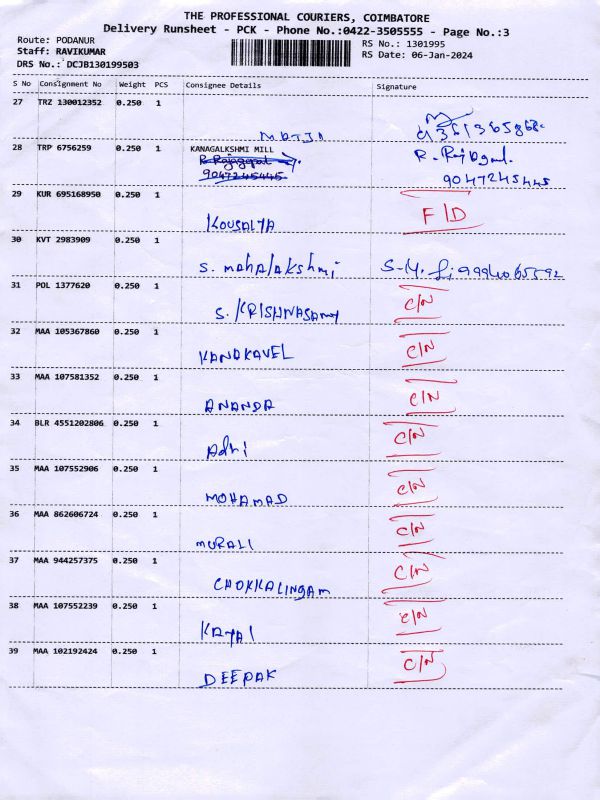 THE PROFESSIONAL COURIERS, COIMBATORE
Delivery Runsheet - PCK - Phone No.:0422-3505555 - Page No.:3
Route: PODANUR
RS No.: 1301995
Staff: RAVIKUMAR
RS Date: 06-Jan-2024
DRS No.: DCJB130199503
S No Consignment No Weight PCS Consignee Details Signature
27 TRZ 130012352 0.250 1
28 TRP 6756259 0.250 1 KANAGALKSHMI MILL R. Rajagopal
9047245445 9047245445
29 KUR 695168950 0.250 1 KOUSALYA F/D
30 KVT 2983909 0.250 1 S. mahalakshmi
31 POL 1377620 0.250 1 S. KRISHNASAMY C/N
32 MAA 105367860 0.250 1 KANAKAVEL C/N
33 MAA 107581352 0.250 1 ANANDA C/N
34 BLR 4551202806 0.250 1 Adhi C/N
35 MAA 107552906 0.250 1 MOHAMAD C/N
36 MAA 862606724 0.250 1 MURALI C/N
37 MAA 944257375 0.250 1 CHOKKALINGAM C/N
38 MAA 107552239 0.250 1 KAYAL C/N
39 MAA 102192424 0.250 1 DEEPAK C/N